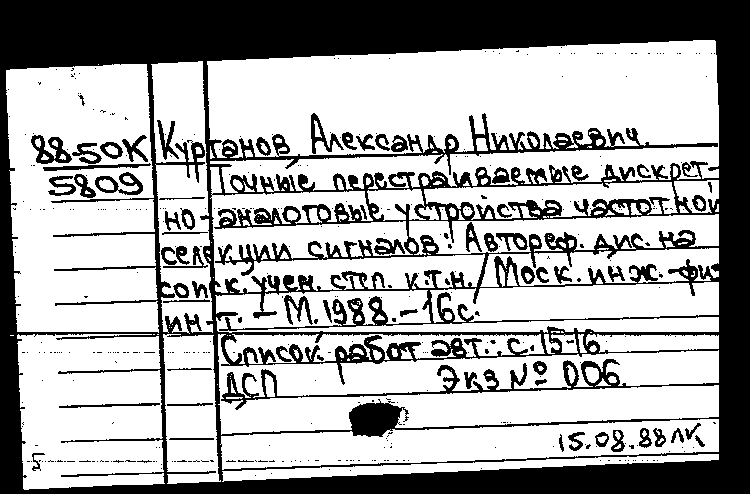 88-50К Курганов, Александр Николаевич.
5809 Точные перестраиваемые дискрет-
но-аналоговые устройства частотной
селекции сигналов: Автореф. дис. на
соиск. учен. степ. к.т.н. / Моск. инж.-физ
ин-т. - М. 1988. - 16с.
Список работ авт.: с. 15-16.
ДСП Экз № 006.
15.08.88 ЛК